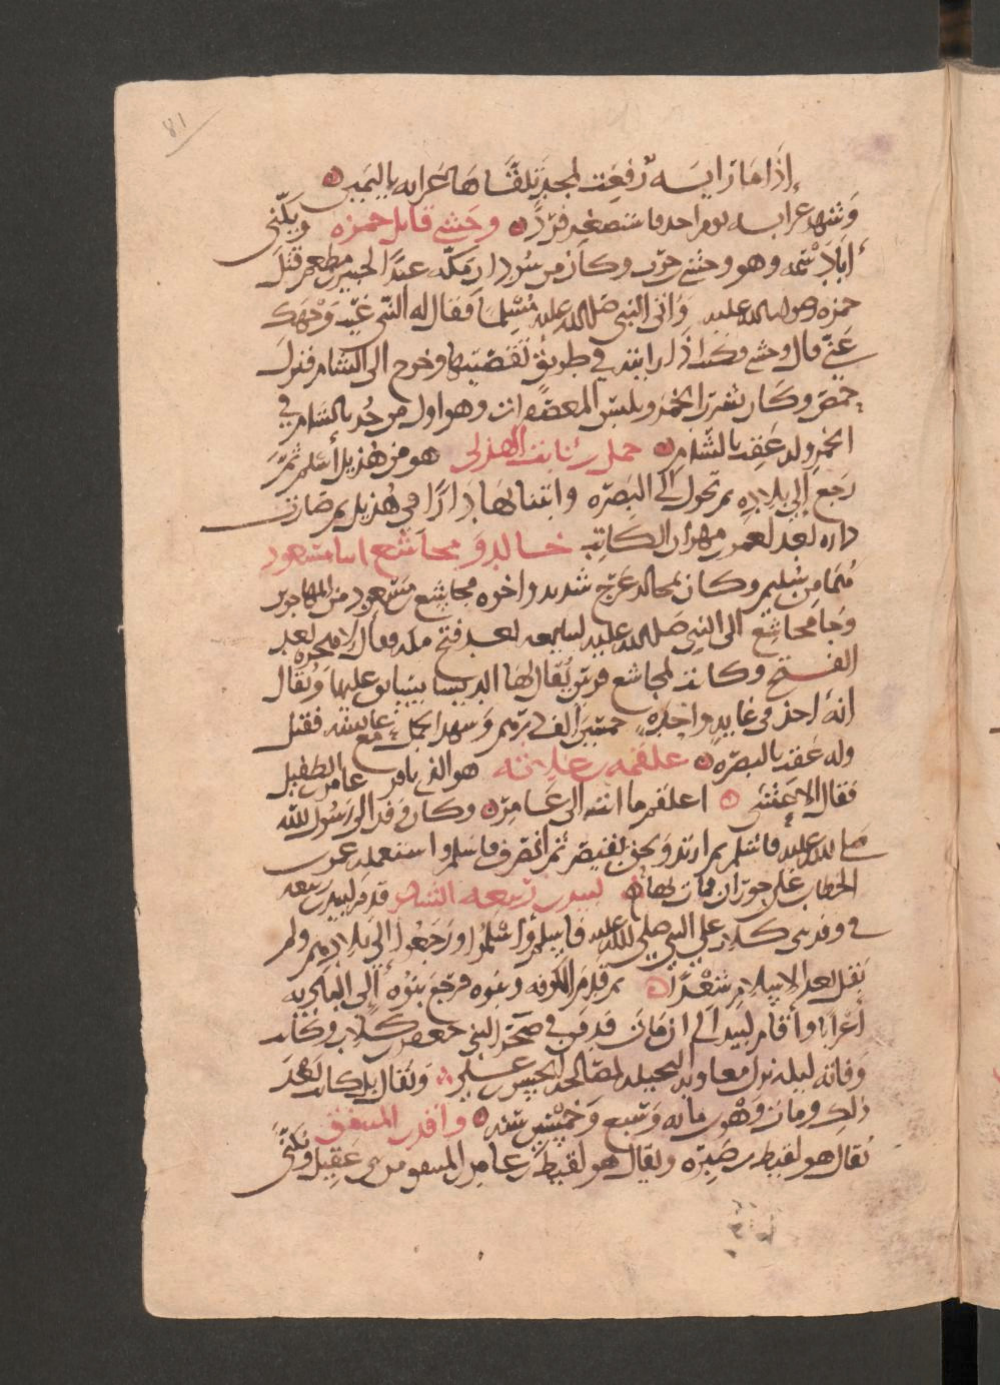 81
إذا ما راية رفعت لمجد تلقاها عرابه باليمين
وشهد عرابه يوم احد فاستصغر فردّ وحشي قاتل حمزه ويكنّى
أبا دسمه وهو وحشي بن حرب وكان من سودان مكه عبدًا لجبير بن مطعم قتل
حمزه رضوان الله عليه وأتى النبي صلى الله عليه مسلمًا فقال له النبي غيّب وجهك
عنّي قال وحشي فكنت إذا رايته في طريق تقصّيتها وخرج الى الشام فنزل
حمص وكان يشرب الخمر ويلبس المعصفرات وهو اول من حُد بالشام في
الخمر وله عقب بالشام حمل بن نابغه الهذلي هو من هذيل أسلم ثمّ
رجع إلى بلاده ثم تحول الى البصره وابتنا بها دارًا في هذيل ثم صارت
داره بعد لعمر بن مهران الكاتب خالد ومجاشع ابنا مسعود
هُما من سُليم وكان بمجالد عرج شديد واخوه مجاشع بن مسعود من المهاجرين
وجا مجاشع الى النبي صلى الله عليه ليبايعه بعد فتح مكه وقال لا هجره بعد
الفتح وكانت لمجاشع فرس يُقال لها الدبيسا يسابق عليها ويُقال
انه أخذ في غايه واحده خمسين ألف درهم وشهد الجمل مع عايشه فقتل
وله عقب بالبصره علقمه بن علاثه هو الذي نافر عامر بن الطفيل
فقال الاعشى اعلقم ما انت الى عامر وكان وفد الى رسول الله
صلى الله عليه فاسلم ثم ارتد ولحق بقيصر ثم انصرف فاسلم واستعمله عمر بن
الخطاب على حوران فمات بها لبيد بن ربيعه الشاعر قدم لبيد بن ربيعه
في وفد بني كلاب على النبي صلى الله عليه فاسلموا ورجعوا إلى بلادهم ولم
يقل بعد الإسلام شعرًا ثم قدم الكوفه وبنوه فرجع بنوه إلى الباديه
أعرابا وأقام لبيد الى ان مات فدفن في صحرا بني جعفر بن كلاب وكانت
وفاته ليله نزل معاويه النخيله لمصالحه الحسن بن علي ويُقال بل كانت بعد
ذلك ومات وهو بن مايه وسبع وخمسين سنه وافد بن المنتفق
يُقال هو لقيط بن صبره ويقال هو لقيط بن عامر بن المنتفق من بني عقيل ويُكنّى